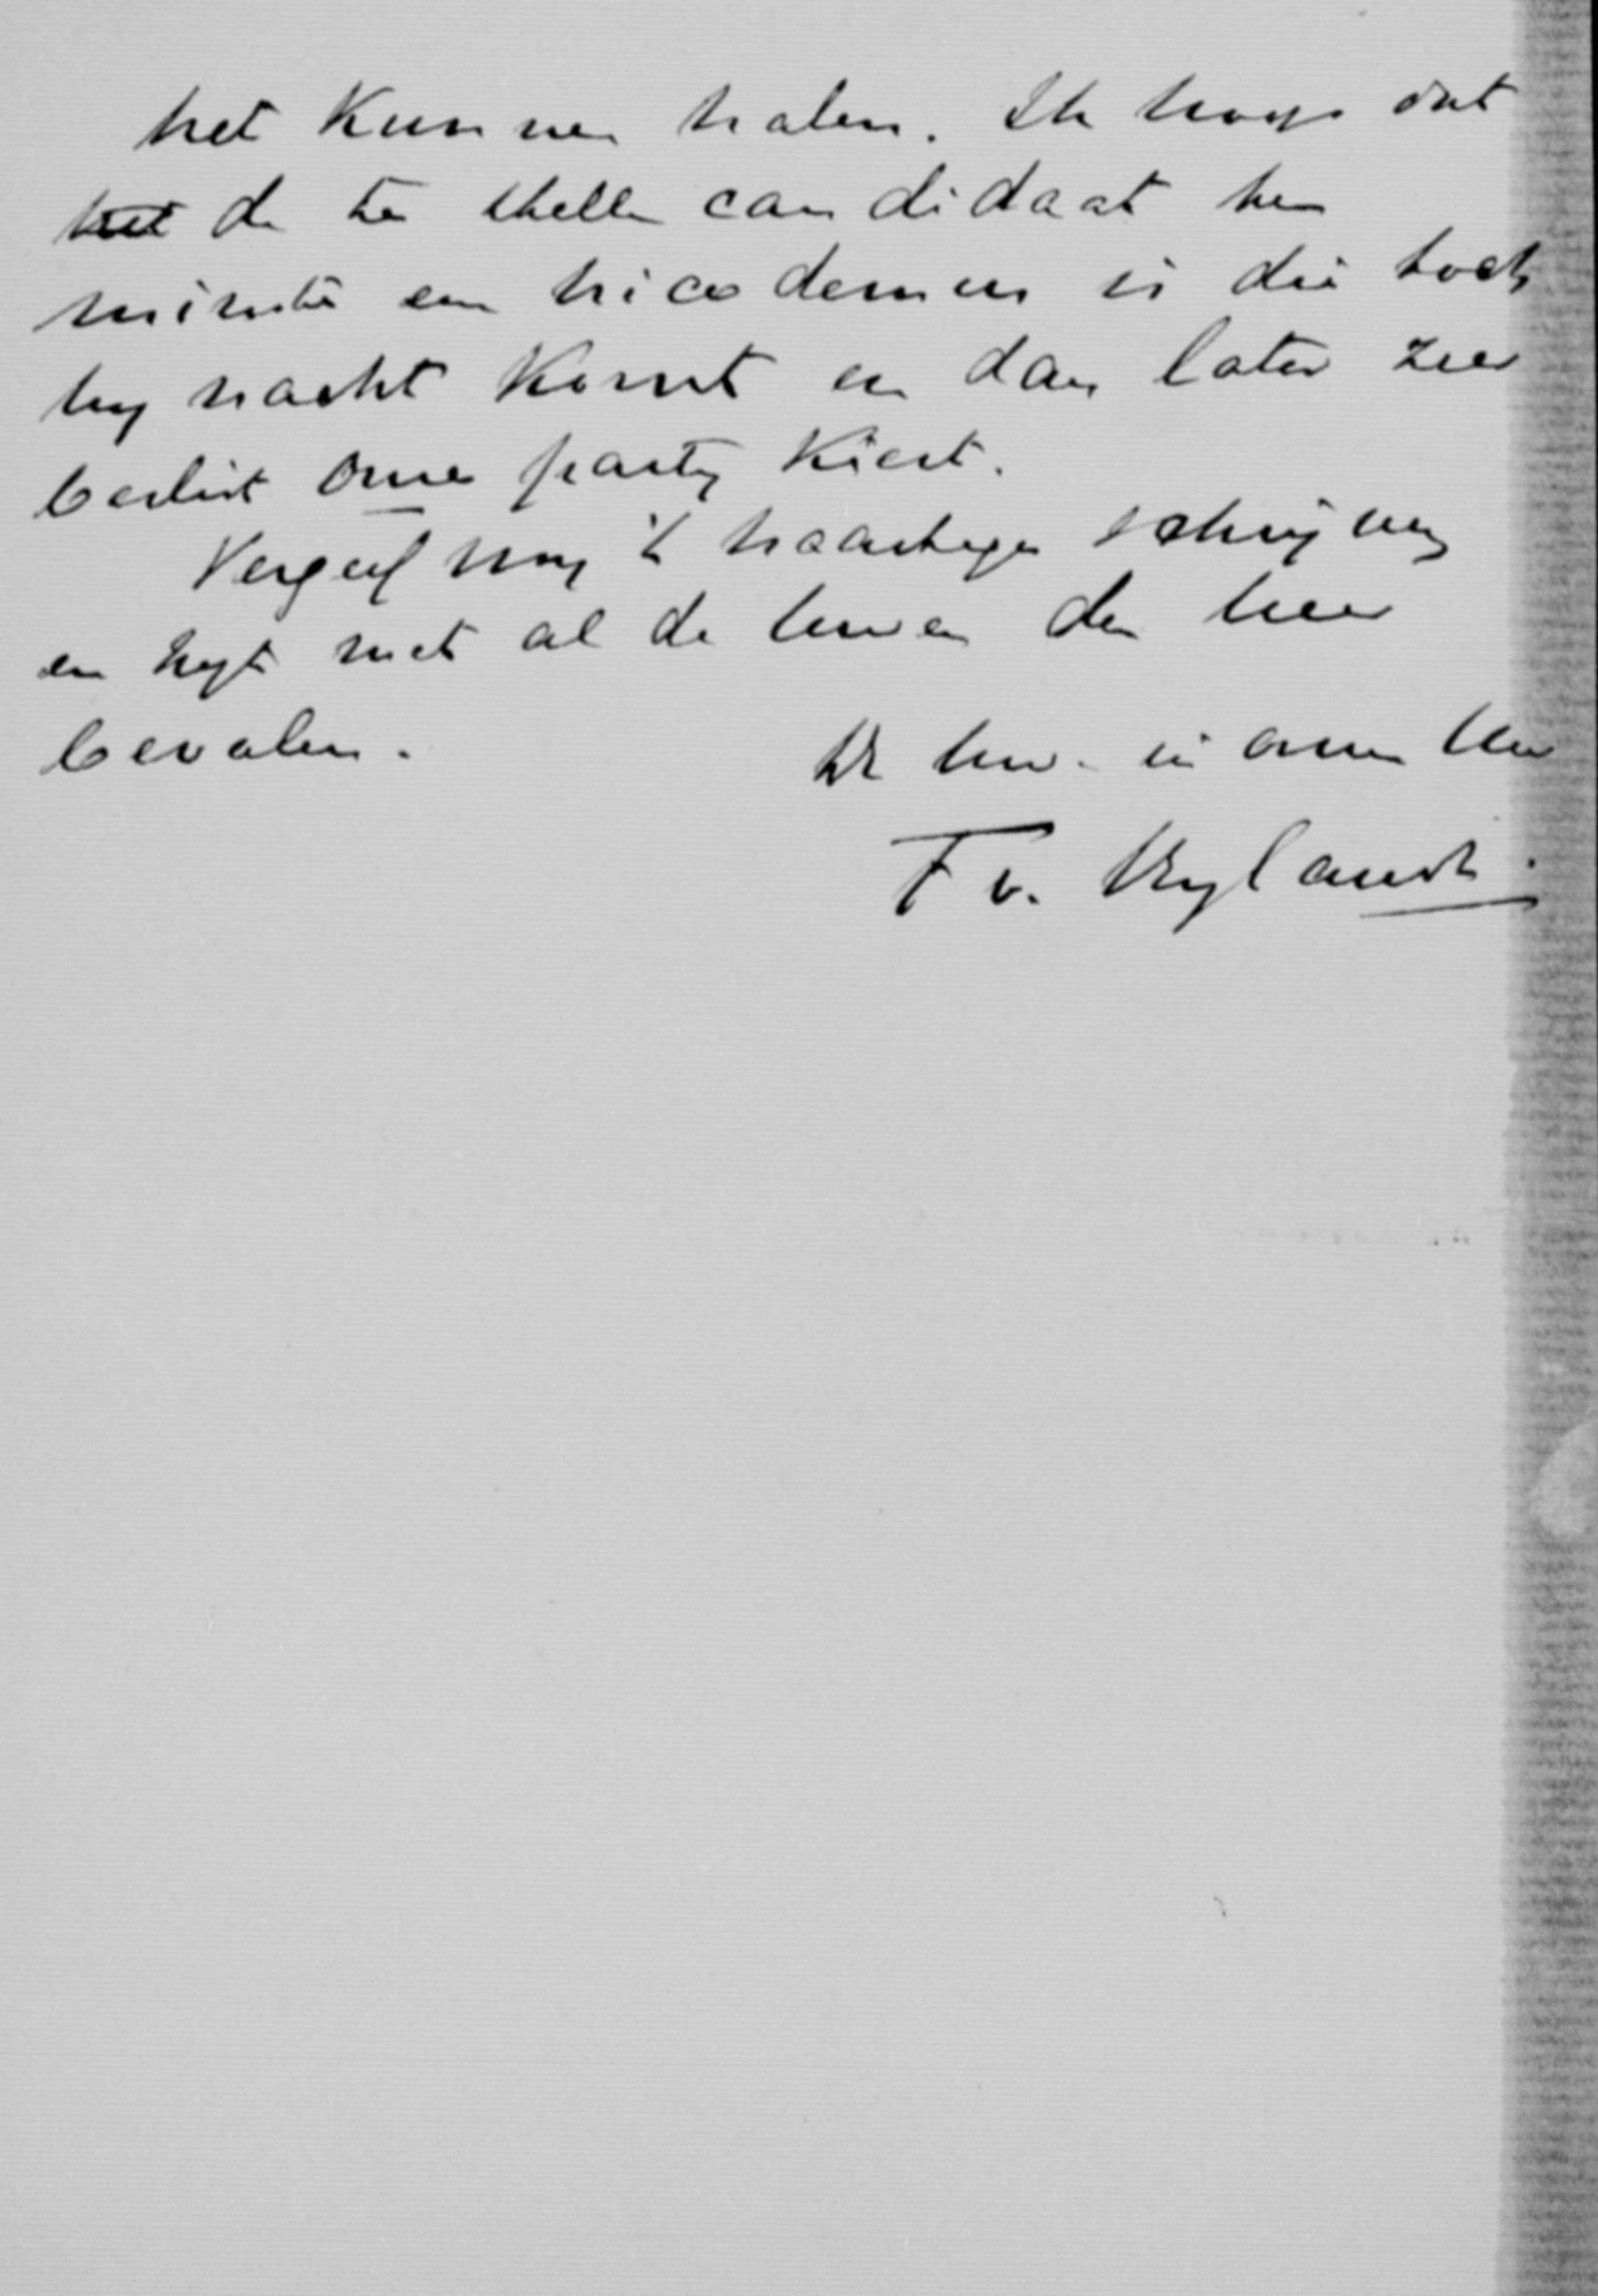 het kunnen halen. Ik hoop dat
het de te stellen candidaat ten
minste een Nicodemus is die toch
by nacht komt en dan later zeer
beslist onze party kiest.
Vergeef my 't haastige schryven
en zyt met al de Uwen den Heer
bevolen.
Uw in onzen Heer
F v. Bylandt.